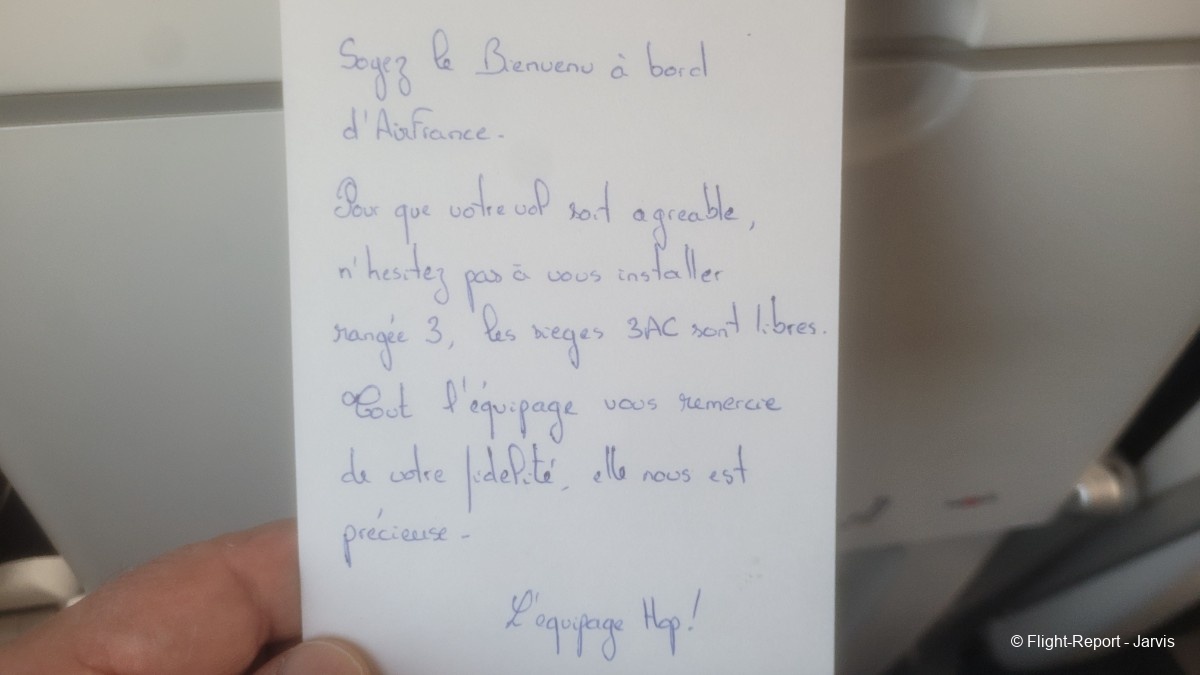 Soyez le Bienvenu à bord
d'AirFrance.
Pour que votre vol soit agreable,
n'hesitez pas à vous installer
rangée 3, les sieges 3AC sont libres.
Tout l'équipage vous remercie
de votre fidelité, elle nous est
précieuse.
L'équipage Hop!
© Flight-Report - Jarvis